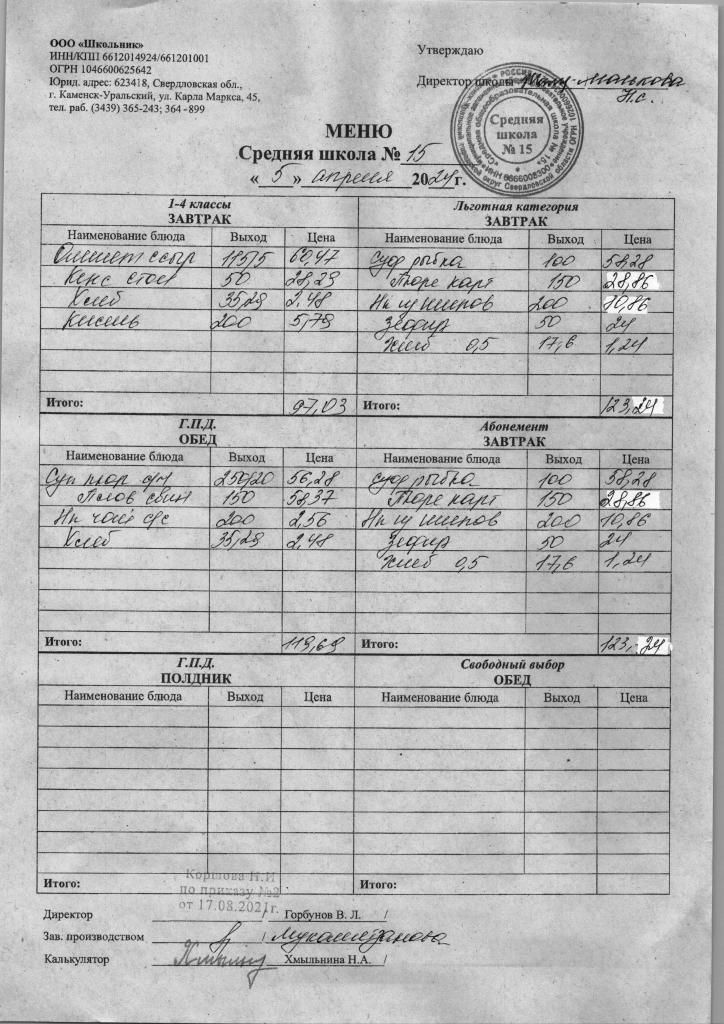 ООО «Школьник»
ИНН/КПП 6612014924/661201001
ОГРН 1046600625642
Юрид. адрес: 623418, Свердловская обл.,
г. Каменск-Уральский, ул. Карла Маркса, 45,
тел. раб. (3439) 365-243; 364 -899
Утверждаю
Директор школы
Н.С.
Средняя
школа
№ 15
МЕНЮ
Средняя школа № 15
« 5 » апреля 2024 г.
1-4 классы
ЗАВТРАК
Наименование блюда Выход Цена
Омлет с сыр 115/5 60,47
Кекс стол 50 28,29
Хлеб 35,29 2,48
Кисель 200 5,79
Итого: 97,03
Льготная категория
ЗАВТРАК
Наименование блюда Выход Цена
рыбка 100 58,28
Пюре карт 150 28,86
Нп шипов 200 10,86
Зефир 50 24
Хлеб 0,5 17,6 1,24
Итого: 123,24
Г.П.Д.
ОБЕД
Наименование блюда Выход Цена
Суп 250/20 56,28
Плов свин 150 58,37
Нп чай с/с 200 2,56
Хлеб 35,29 2,48
Итого: 119,69
Абонемент
ЗАВТРАК
Наименование блюда Выход Цена
рыбка 100 58,28
Пюре карт 150 28,86
Нп шипов 200 10,86
Зефир 50 24
Хлеб 0,5 17,6 1,24
Итого: 123,-24
Г.П.Д.
ПОЛДНИК
Наименование блюда Выход Цена
Итого:
Свободный выбор
ОБЕД
Наименование блюда Выход Цена
Итого:
Коршова Н.И
по приказу №2
от 17.08.2021г.
Директор / Горбунов В. Л. /
Зав. производством /
Калькулятор / Хмыльнина Н.А. /